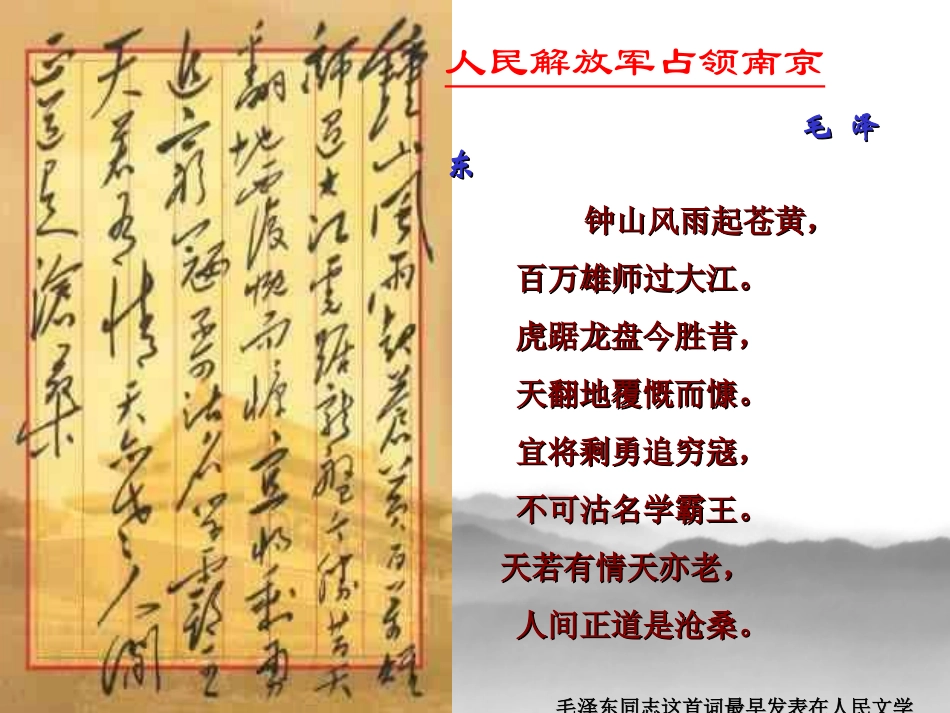 人民解放军占领南京
毛 泽
东
钟山风雨起苍黄，
百万雄师过大江。
虎踞龙盘今胜昔，
天翻地覆慨而慷。
宜将剩勇追穷寇，
不可沽名学霸王。
天若有情天亦老，
人间正道是沧桑。
毛泽东同志这首词最早发表在人民文学
鍾山风雨起苍黄百万雄
师过大江虎踞龙盘今胜昔天
翻地覆慨而慷宜将剩勇
追穷寇不可沽名学霸王
天若有情天亦老人间
正道是滄桑